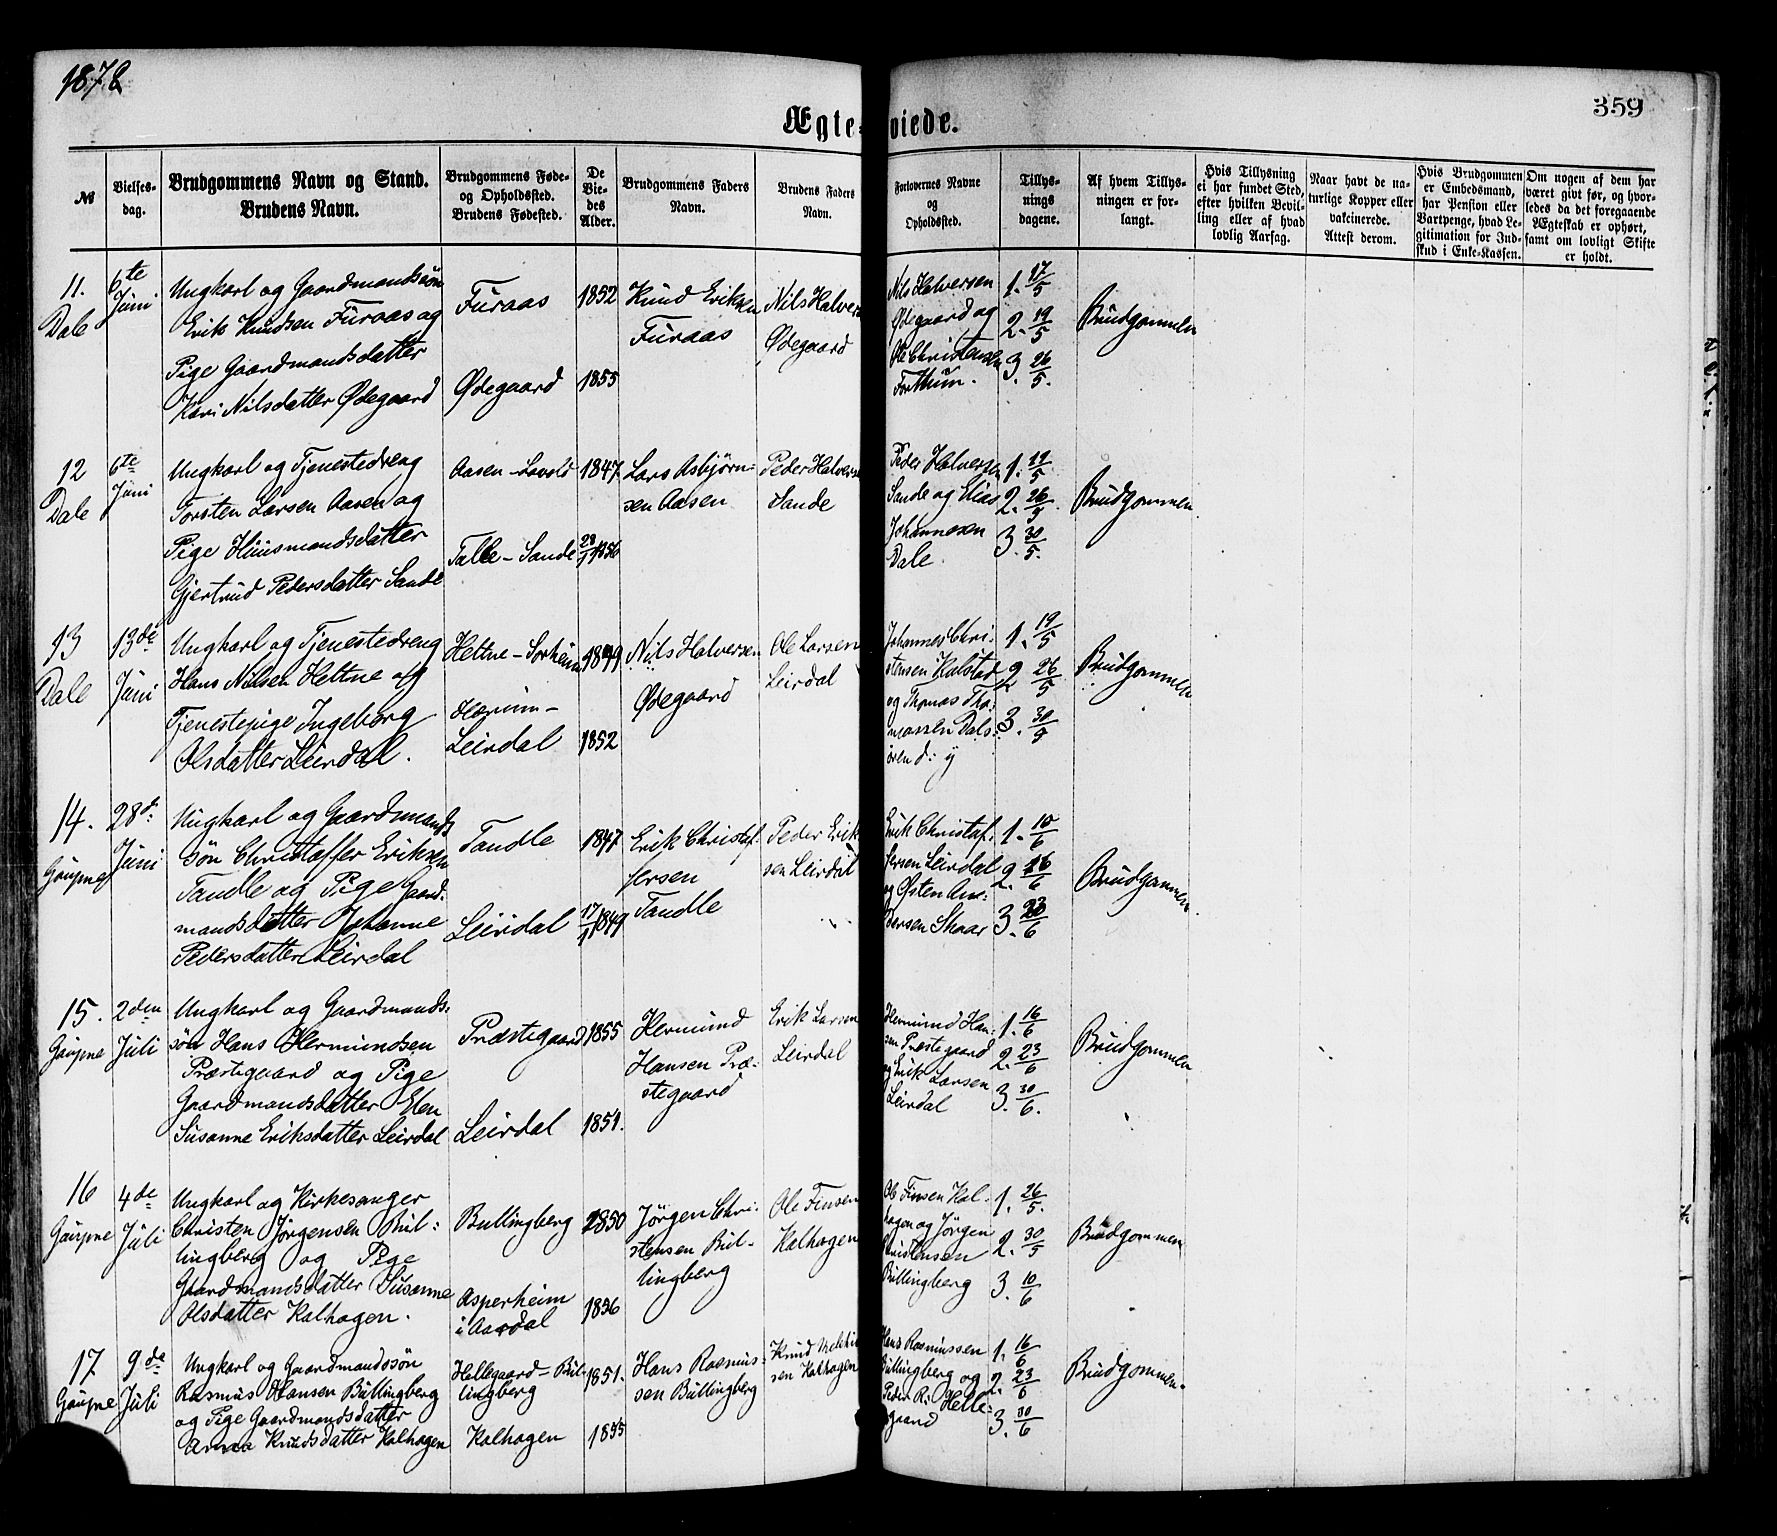 1878
359
Ægteviede.
№
Vielsesdag.
Brudgommens Navn og Stand.
Brudens Navn.
Brudgommens Føde-
og Opholdssted.
Brudens Fødested.
De
Vie-
des
Alder.
Brudgommens Faders
Navn.
Brudens Faders
Navn.
Forlovernes Navne
og
Opholdssted.
Tillys-
nings
dagene.
Af hvem Tillys-
ningen er for-
langt.
Hvis Tillysning
ei har fundet Sted,
efter hvilken Bevil-
ling eller af hvad
lovlig Aarsag.
Naar havt de na-
turlige Kopper eller
vakcinerede.
Attest derom.
Hvis Brudgommen
er Embedsmand,
har Pension eller
Vartpenge, hvad Le-
gitimation for Ind-
skud i Enke-Kassen.
Om nogen af dem har
været givt før, og hvor-
ledes da det foregaaende
Ægteskab er ophørt,
samt om lovligt Skifte
er holdt.
11.
Dale
6te
Juni
Ungkarl og Gaardmandssøn
Erik Knudsen Furaas og
Pige Gaardmandsdatter
Kari Nilsdatter Ødegaard
Furaas
Ødegaard
1852
1855
Knud Eriksen
Furaas
Nils Halvers
Ødegaard
Nils Halversen
Ødegaard og
Ole Christensen
Forthun.
1. 17/5
2. 19/5
3. 26/5.
Brudgommen
12
Dale
6te
Juni
Ungkarl og Tjenestedreng
Torsten Larsen Aasen og
Pige Huusmandsdatter
Gjertrud Pedersdatter Sande
Aasen -
Talle - Sande
1847
1856
Lars Asbjørn-
sen Aasen
Peder Halvers
Sande
Peder Halversen
Sande og Elias
Johannesen
Dale.
1. 19/5
2. 26/5
3. 30/5.
Brudgommen.
13
Dale
13de
Juni
Ungkarl og Tjenestedreng
Hans Nilsen Heltne og
Tjenestepige Ingeborg
Olsdatter Leirdal.
Heltne - Sorheim
Leirdal
1849
1852
Nils Halversen
Ødegaard
Ole Larsen
Leirdal
Johannes Chri-
stensen Kalstad
og Thomas Tho-
massen Dals-
øren d: y
1. 19/5
2 26/5
3. 30/5
Brudgommen
14.
Gaupne
28d:
Juni
Ungkarl og Gaardmands
søn Christaffer Eriksen
Tandle og Pige Gaard-
mandsdatter Johanne
Pedersdatter Leirdal
Tandle
Leirdal
1847
17/1 1849
Erik Christaf-
fersen
Tandle
Peder Erik
sen Leirdal
Erik Christaf-
fersen Leirdal
og Østen An-
dersen Skaar
1. 10/6
2. 16/6
3. 23/6
Brudgommen.
15.
Gaupne
2den
Juli
Ungkarl og Gaardmands-
søn Hans Hermundsen
Præstegaard og Pige
Gaardmandsdatter Elen
Susanne Eriksdatter Leirdal
Præstegaard
Leirdal
1855
1851.
Hermund
Hansen Præ-
stegaard
Erik Larsen
Leirdal
Hermund Han-
sen Præstegaard
og Erik Larsen
Leirdal
1. 16/6
2. 23/6
3. 30/6.
Brudgommen
16
Gaupne
4de
Juli
Ungkarl og Kirkesanger
Christen Jørgensen Bul-
lingberg og Pige
Gaardmandsdatter Susanne
Olsdatter Kalhagen.
Bullingberg
Asperheim
i Aardal
1850
1856
Jørgen Chri-
stensen Bul-
lingberg
Ole Finsen
Kalhagen
Ole Finsen Kal-
hagen og Jørgen
Christensen
Bullingberg
1. 26/5.
2. 30/5
3. 10/6
Brudgommen
17
Gaupne
9de
Juli
Ungkarl og Gaardmandssøn
Rasmus Hansen Bullingberg
og Pige Gaardmandsdatter
Anna Knudsdatter Kalhagen
Hellegaard - Bul-
lingberg
Kalhagen
1851.
1855
Hans Rasmus-
sen Bullingberg
Knud
sen Kalhagen
Hans Rasmussen
Bullingberg og
Peder R. Helle-
gaard
1. 16/6
2. 23/6
3. 30/6
Brudgommen.